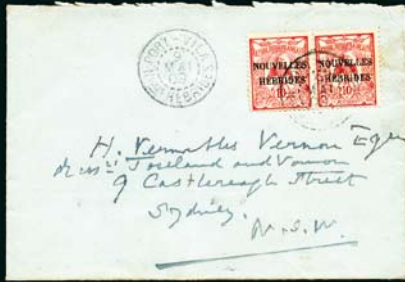 PORT-VILA
MAI
NOUVELLES HÉBRIDES
10
NOUVELLES HÉBRIDES
10
H. Venables Vernon Esq
Joseland and Vernon
9 Castlereagh Street
Sydney.
N.S.W.